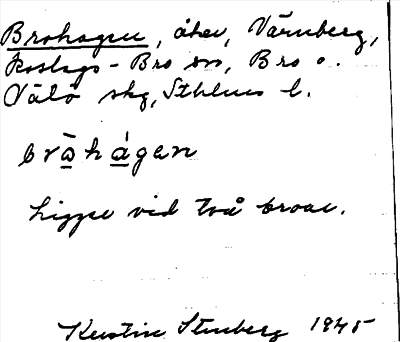 Brohagen, åker, Värnberg,
Roslags-Bro sn, Bro o.
Välö skg, Sthlms l.
bråhågen
Ligger vid två broar.
Kerstin Stenberg 1945